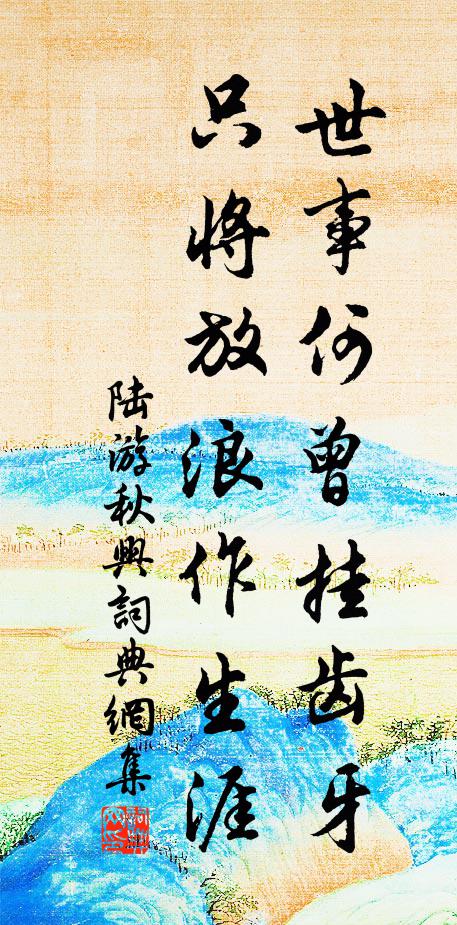 世事何曾挂齿牙
只将放浪作生涯
陆游秋興詞典網集